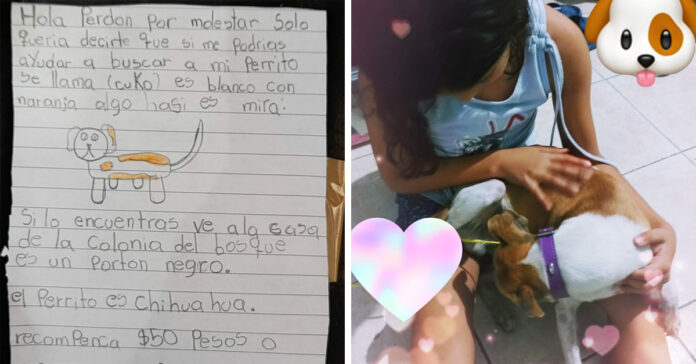 Hola Perdon Por molestar Solo
queria decirte que si me Podrias
ayudar a buscar a mi Perrito
se llama (cuko) es blanco con
naranja algo hasi es mira:
Si lo encuentras ve ala casa
de la Colonia del bosque
es un Porton negro.
el Perrito es Chihuahua.
recompenca $50 Pesos o